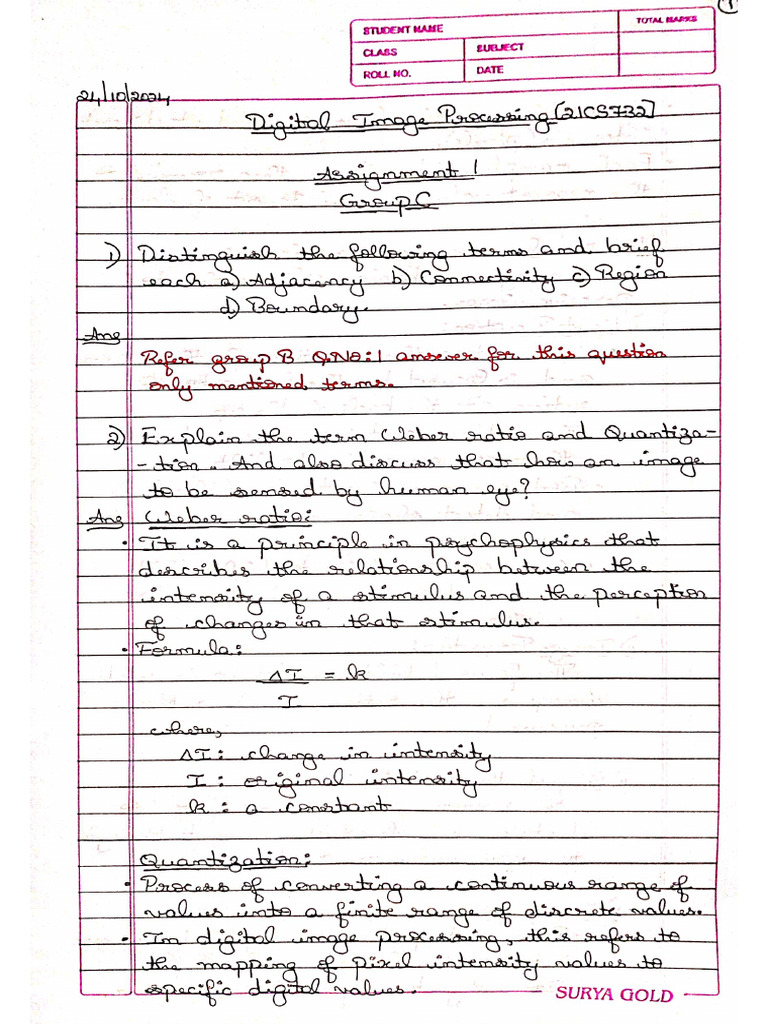 1
STUDENT NAME
TOTAL MARKS
CLASS
SUBJECT
ROLL NO.
DATE
24/10/2024
Digital Image Processing [21CS732]
Assignment 1
Group C
1) Distinguish the following terms and brief
each a) Adjacency b) Connectivity c) Region
d) Boundary.
Ans
Refer group B Q.NO:1 answer for this question
only mentioned terms.
2) Explain the term Weber ratio and Quantiza-
-tion. And also discuss that how an image
to be sensed by human eye?
Ans Weber ratio:
• It is a principle in psychophysics that
describes the relationship between the
intensity of a stimulus and the perception
of changes in that stimulus.
• Formula:
ΔI = k
I
where,
ΔI : change in intensity
I : original intensity
k : a constant
Quantization:
• Process of converting a continuous range of
values into a finite range of discrete values.
• In digital image processing, this refers to
the mapping of pixel intensity values to
specific digital values.
SURYA GOLD